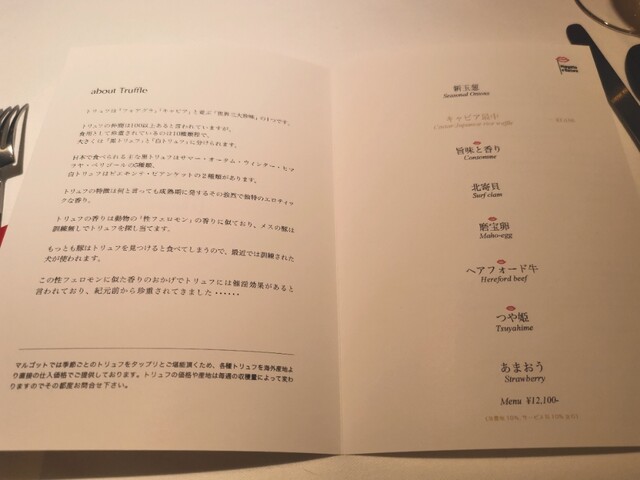 about Truffle
トリュフは「フォアグラ」「キャビア」と並ぶ「世界三大珍味」の1つです。
トリュフの種類は100以上あると言われていますが、
食用として珍重されているのは10種類程で、
大きくは「黒トリュフ」と「白トリュフ」に分けられます。
日本で食べられる主な黒トリュフはサマー・オータム・ウィンター・ヒマ
ラヤ・ペリゴールの5種類、
白トリュフはピエモンテ・ビアンケットの2種類があります。
トリュフの特徴は何と言っても成熟期に発するその強烈で独特のエロティッ
クな香り。
トリュフの香りは動物の「性フェロモン」の香りに似ており、メスの豚は
訓練無しでトリュフを探し当てます。
もっとも豚はトリュフを見つけると食べてしまうので、最近では訓練された
犬が使われます。
この性フェロモンに似た香りのおかげでトリュフには催淫効果があると
言われており、紀元前から珍重されてきました・・・・・・
マルゴットでは季節ごとのトリュフをタップリとご堪能頂くため、各種トリュフを海外産地よ
り直接の仕入価格でご提供しております。トリュフの価格や産地は毎週の収穫量によって変わ
りますのでその都度お問合せ下さい。
新玉葱
Seasonal Onions
キャビア最中
旨味と香り
Consomme
北寄貝
Surf clam
磨宝卵
Maho-egg
ヘアフォード牛
Hereford beef
つや姫
Tsuyahime
あまおう
Strawberry
Menu ¥12,100-